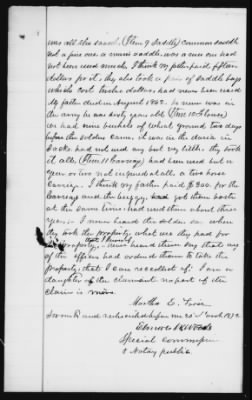 was all she saved. (Item 9 Saddle) common saddle
not a fine one a mans saddle was a new one had
not been used much, I think my father paid fifteen
dollars for it; they also took a pair of saddle bags
which cost twelve dollars, had never been used
My father died in August 1862. he never was in
the army he was sixty years old (Item 10 House)
we had nine bushels of wheat ground two days
before the soldier came it was in the closet in
Sacks had not used any but very little; they took
it all (Item 11 Carriage) had been used but a
year or two not injured at all a two horse
Carriage. I think my father paid $300. for the
Carriage and the buggy; had got them both
at the same time; had used them about three
years. I never heard the soldier say when
they took the property what use they had for
the property, that I knew of I have heard them say that any
of the officers had ordered them to take the
property; that I can recollect of. I am a
daughter of the claimant no part of the
claim is mine.
Martha E.
Sworn to and subscribed before me 25 1872
Woods
Special commissioner
& Notary public